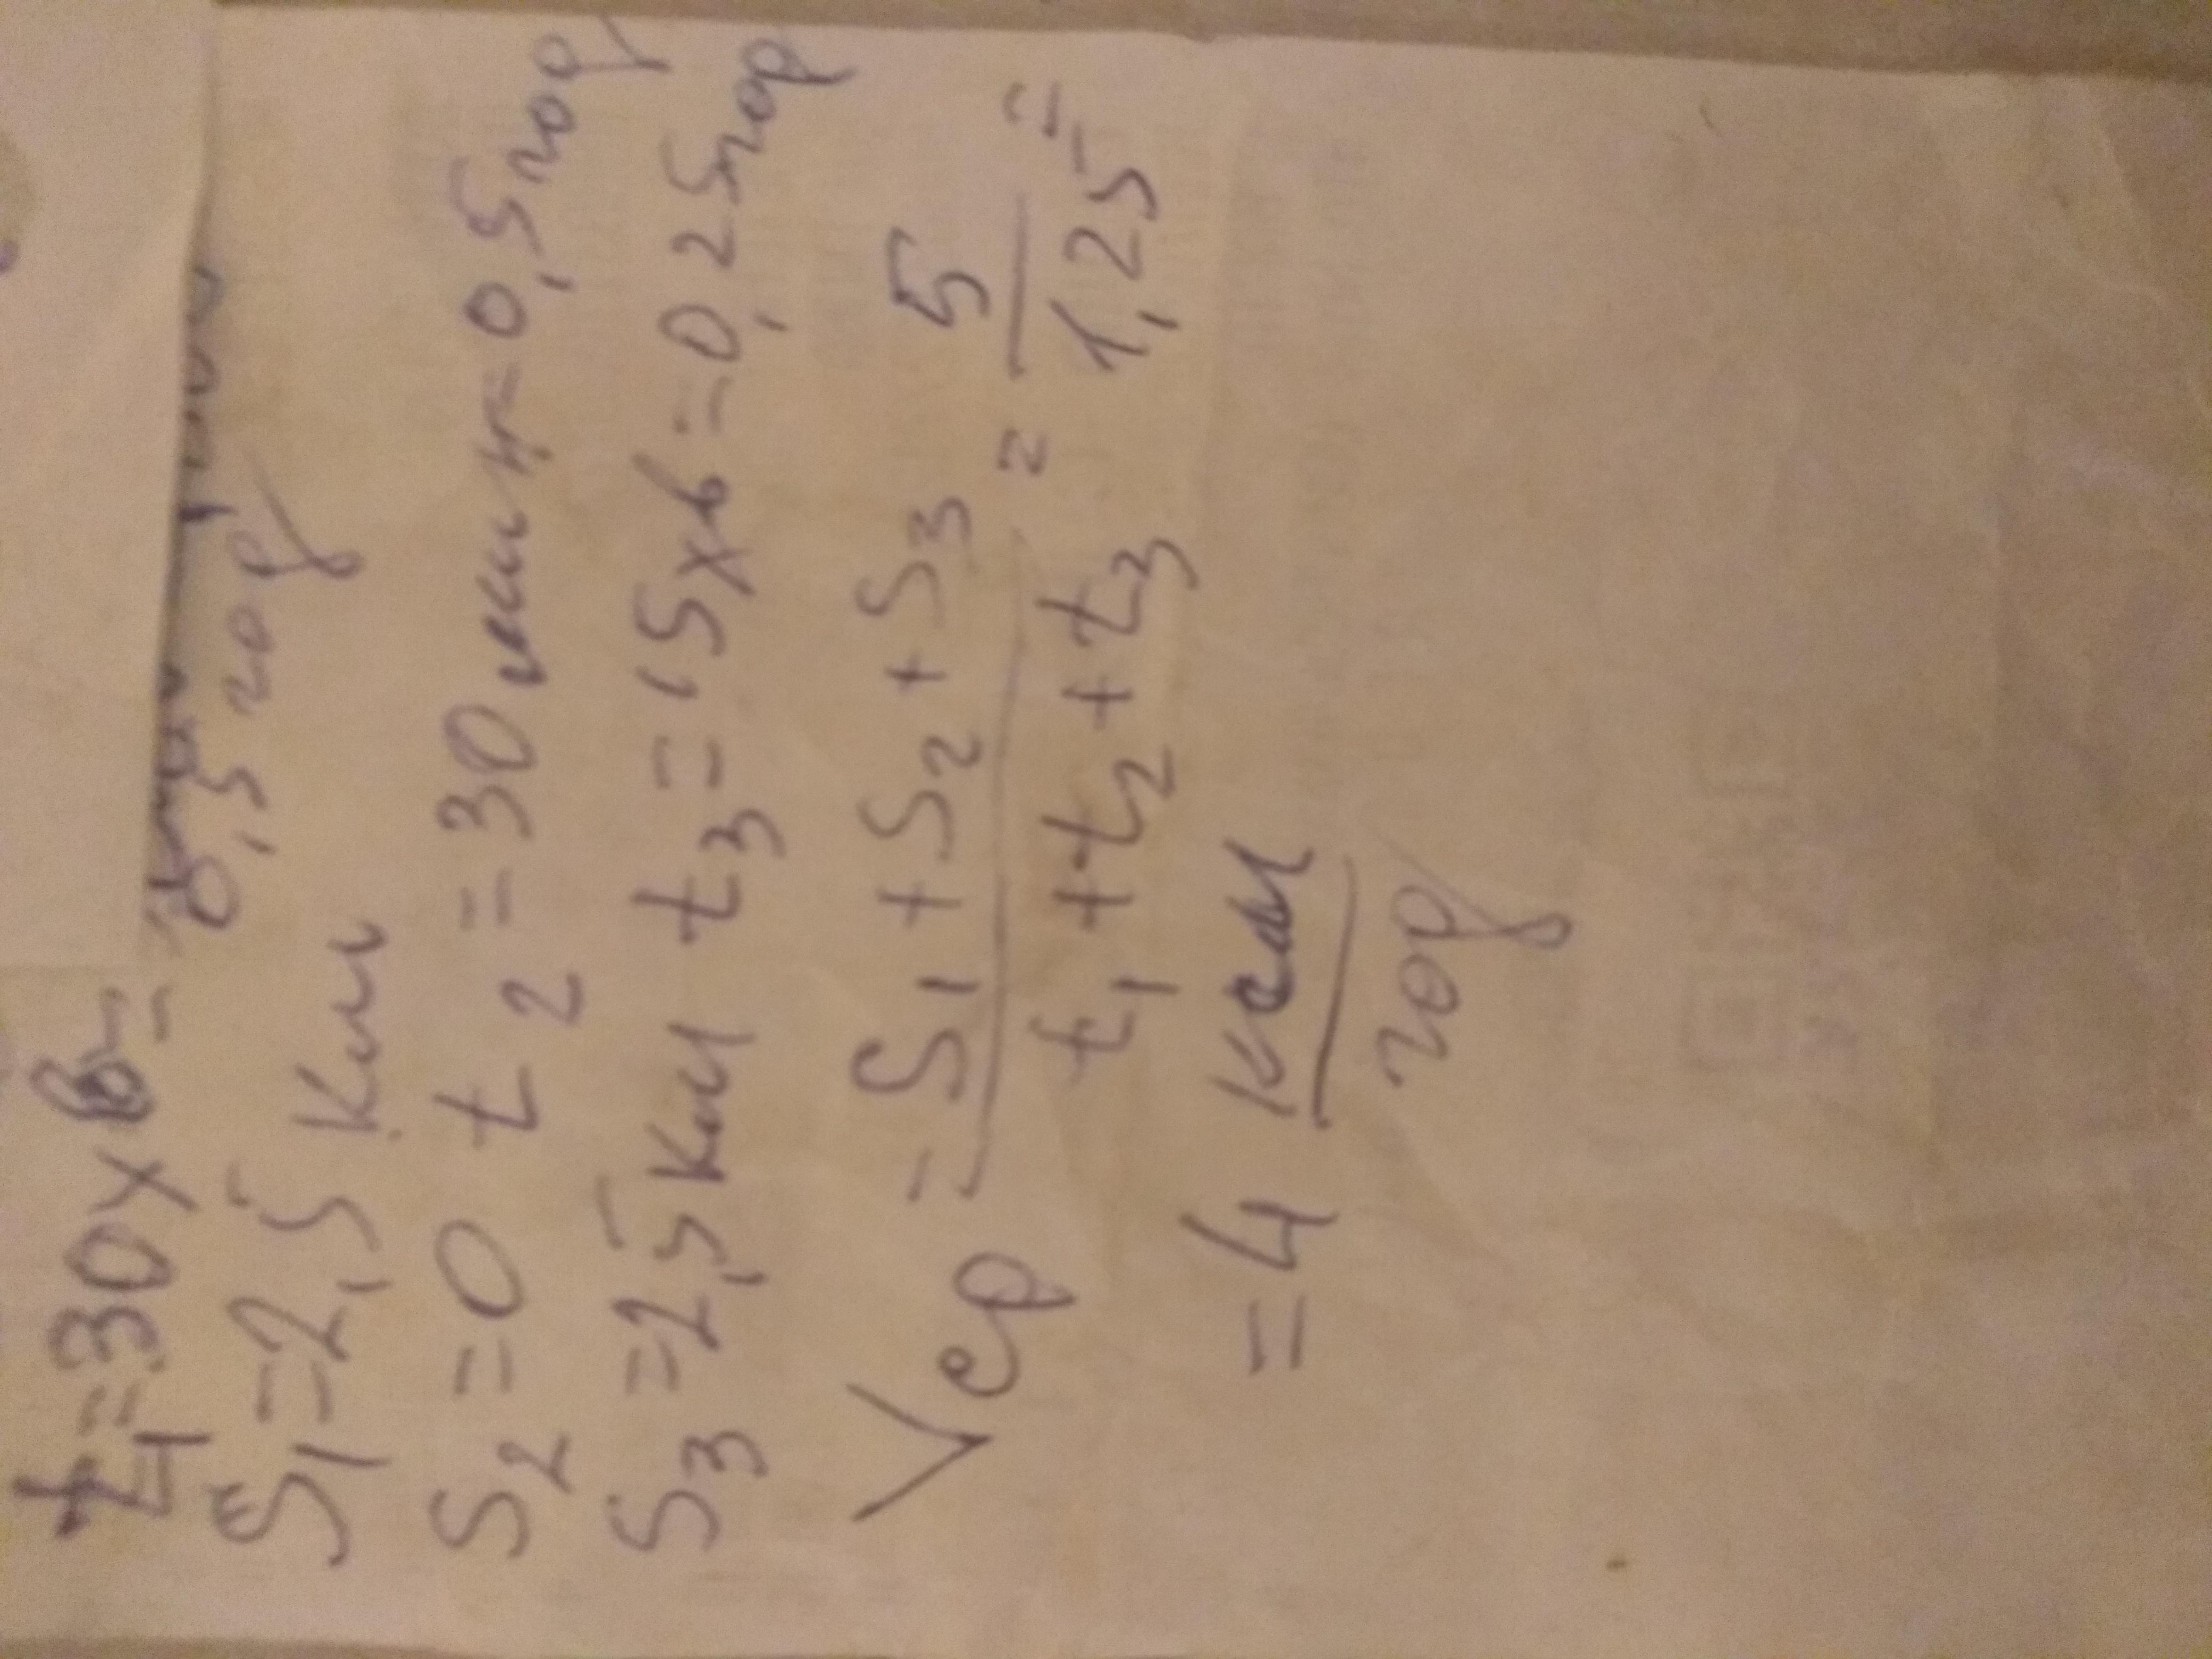 t1=30хв=
0,5 год
S1=2,5 км
S2=0 t2=30мин=0,5год
S3=2,5км t3=15хв=0,25год
Vср = S1+S2+S3 / t1+t2+t3 = 5/1,25 =
=4 км/год